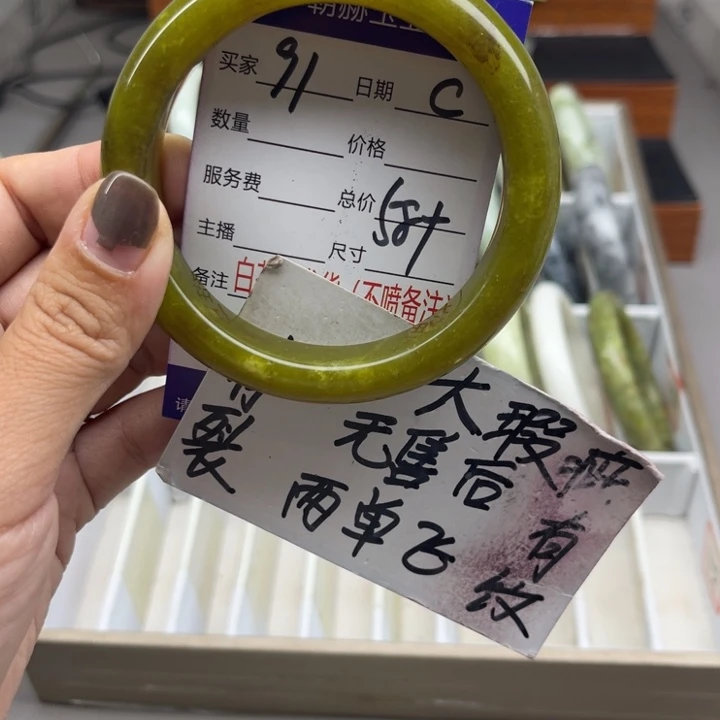 买家 91 日期 C
数量 价格
服务费 总价
主播 尺寸 58+
备注 白 (不喷备注
请
大瑕疵
无售后 有纹
裂 两单飞